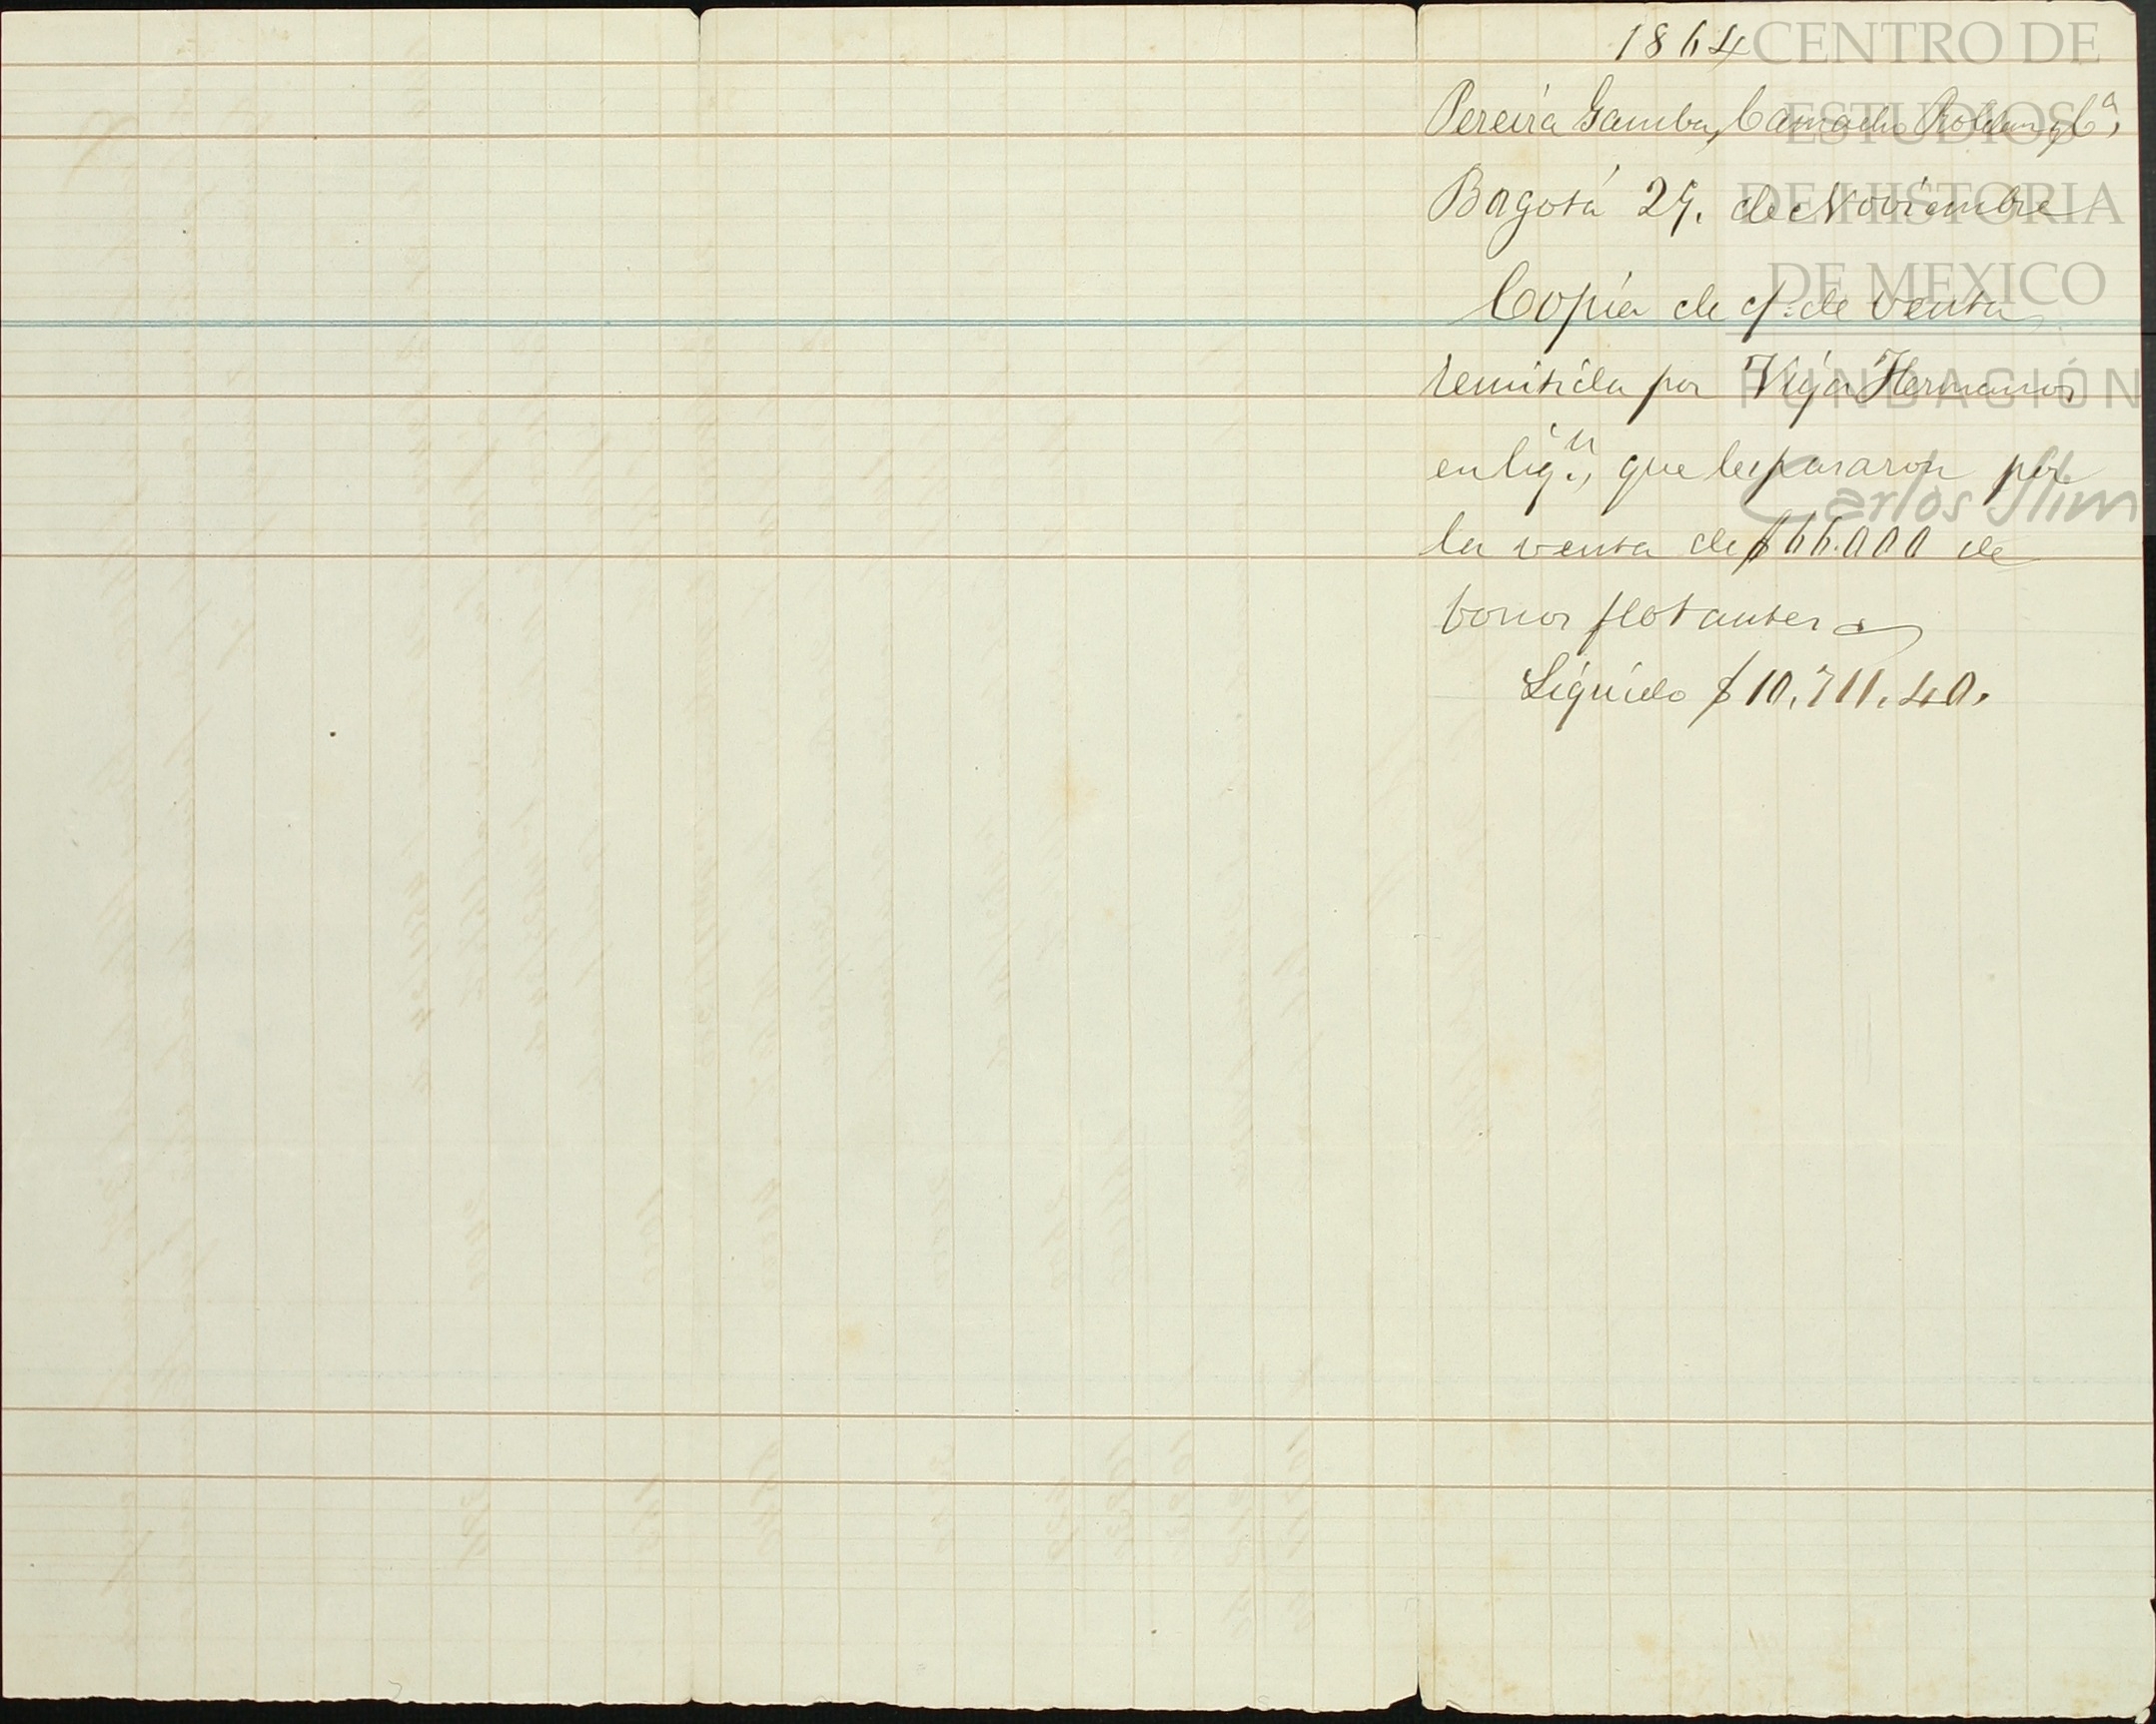 1864
Pereira Gamba, Camacho Roldan y Cª,
Bogotá 29. de Noviembre
Copia de c/. de venta
remitida por Vega Hermanos
en liq.n, que les pasaron por
la venta de $66.000 de
bonos flotantes
Líquido $10.711.40.
CENTRO DE
ESTUDIOS
DE HISTORIA
DE MEXICO
FUNDACIÓN
Carlos Slim